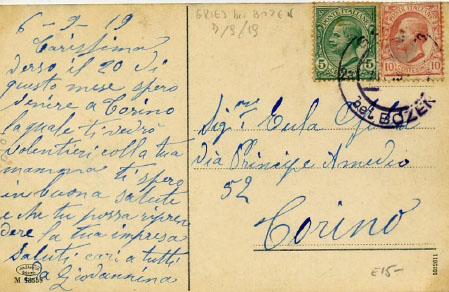 6-9-19
Carissima
verso il 20 di
questo mese spero
venire a Torino
la quale ti vedrò
volentieri colla tua
mamma ti spero
in buona salute
e che tu possa ripren
dere la tua impresa
Saluti cari a tutti
Giovannina
M
GRIES bei BOZEN
9/19
POSTE ITALIANE
5 5
POSTE ITALIANE
10 10
bei BOZEN
Via Principe Amedio
52
Torino
£15-